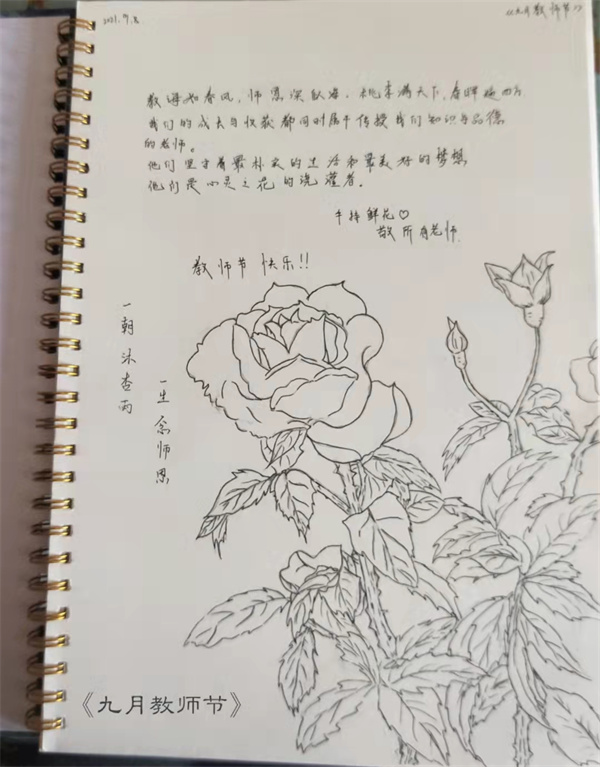 2021.9.8
《九月教师节》
教诲如春风，师恩深似海，桃李满天下，春晖遍四方
我们的成长与收获都同时属于传授我们知识与品德
的教师。
他们坚守着最朴实的生活和最美好的梦想
他们是心灵之花的浇灌者。
手持鲜花♡
敬所有老师
教师节快乐!!
一朝沐杏雨
一生念师恩
《九月教师节》